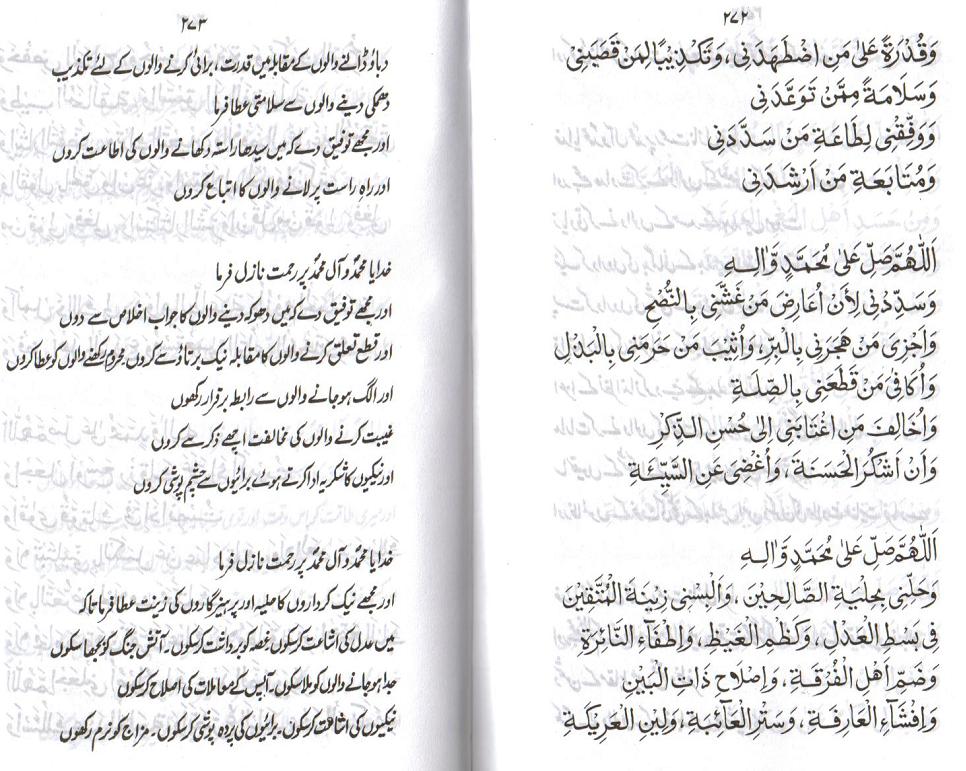 ٢٧٢
وَقُدْرَةً عَلٰى مَنِ اضْطَهَدَنِى ، وَتَكْذِيْبًا لِمَنْ قَصَبَنِىْ
وَسَلَامَةً مِمَّنْ تَوَعَّدَنِى
وَوَفِّقْنِى لِطَاعَةِ مَنْ سَدَّدَنِى
وَمُتَابَعَةِ مَنْ اَرْشَدَنِى
اَللّٰهُمَّ صَلِّ عَلٰى مُحَمَّدٍ وَّاٰلِهِ
وَسَدِّدْنِى لِأَنْ اُعَارِضَ مَنْ غَشَّنِى بِالنُّصْحِ
وَاَجْزِىَ مَنْ هَجَرَنِى بِالْبِرِّ، وَاُثِيْبَ مَنْ حَرَمَنِى بِالْبَذْلِ
وَاُكَافِىَ مَنْ قَطَعَنِى بِالصِّلَةِ
وَاُخَالِفَ مَنِ اغْتَابَنِى اِلٰى حُسْنِ الذِّكْرِ
وَاَنْ اَشْكُرَ الْحَسَنَةَ ، وَاُغْضِىَ عَنِ السَّيِّئَةِ
اَللّٰهُمَّ صَلِّ عَلٰى مُحَمَّدٍ وَّاٰلِهِ
وَحَلِّنِى بِحِلْيَةِ الصَّالِحِيْنَ ، وَاَلْبِسْنِى زِيْنَةَ الْمُتَّقِيْنَ
فِى بَسْطِ الْعَدْلِ ، وَكَظْمِ الْغَيْظِ ، وَاِطْفَآءِ النَّائِرَةِ
وَضَمِّ اَهْلِ الْفُرْقَةِ ، وَاِصْلَاحِ ذَاتِ الْبَيْنِ
وَاِفْشَآءِ الْعَارِفَةِ ، وَسَتْرِ الْعَآئِبَةِ ، وَلِيْنِ الْعَرِيْكَةِ
٢٧٣
دباؤ ڈالنے والوں کے مقابلہ میں قدرت ، برائی کرنے والوں کے لئے تکذیب
دھمکی دینے والوں سے سلامتی عطا فرما
اور مجھے توفیق دے کہ میں سیدھا راستہ دکھانے والوں کی اطاعت کروں
اور راہِ راست پر لانے والوں کا اتباع کروں
خدایا محمدؐ و آل محمدؐ پر رحمت نازل فرما
اور مجھے توفیق دے کہ میں دھوکہ دینے والوں کا جواب اخلاص سے دوں
اور قطع تعلق کرنے والوں کا مقابلہ نیک برتاؤ سے کروں۔ محروم رکھنے والوں کو عطا کروں
اور الگ ہو جانے والوں سے رابطہ برقرار رکھوں
غیبت کرنے والوں کی مخالفت اچھے ذکر سے کروں
اور نیکیوں کا شکریہ ادا کرتے ہوئے برائیوں سے چشم پوشی کروں
خدایا محمدؐ و آل محمدؐ پر رحمت نازل فرما
اور مجھے نیک کرداروں کا حلیہ اور پرہیزگاروں کی زینت عطا فرما تاکہ
میں عدل کی اشاعت کرسکوں غصہ کو برداشت کرسکوں۔ آتش جنگ کو بجھا سکوں
جدا ہو جانے والوں کو ملا سکوں۔ آپس کے معاملات کی اصلاح کرسکوں
نیکیوں کی اشاعت کرسکوں۔ برائیوں کی پردہ پوشی کرسکوں۔ مزاج کو نرم رکھوں